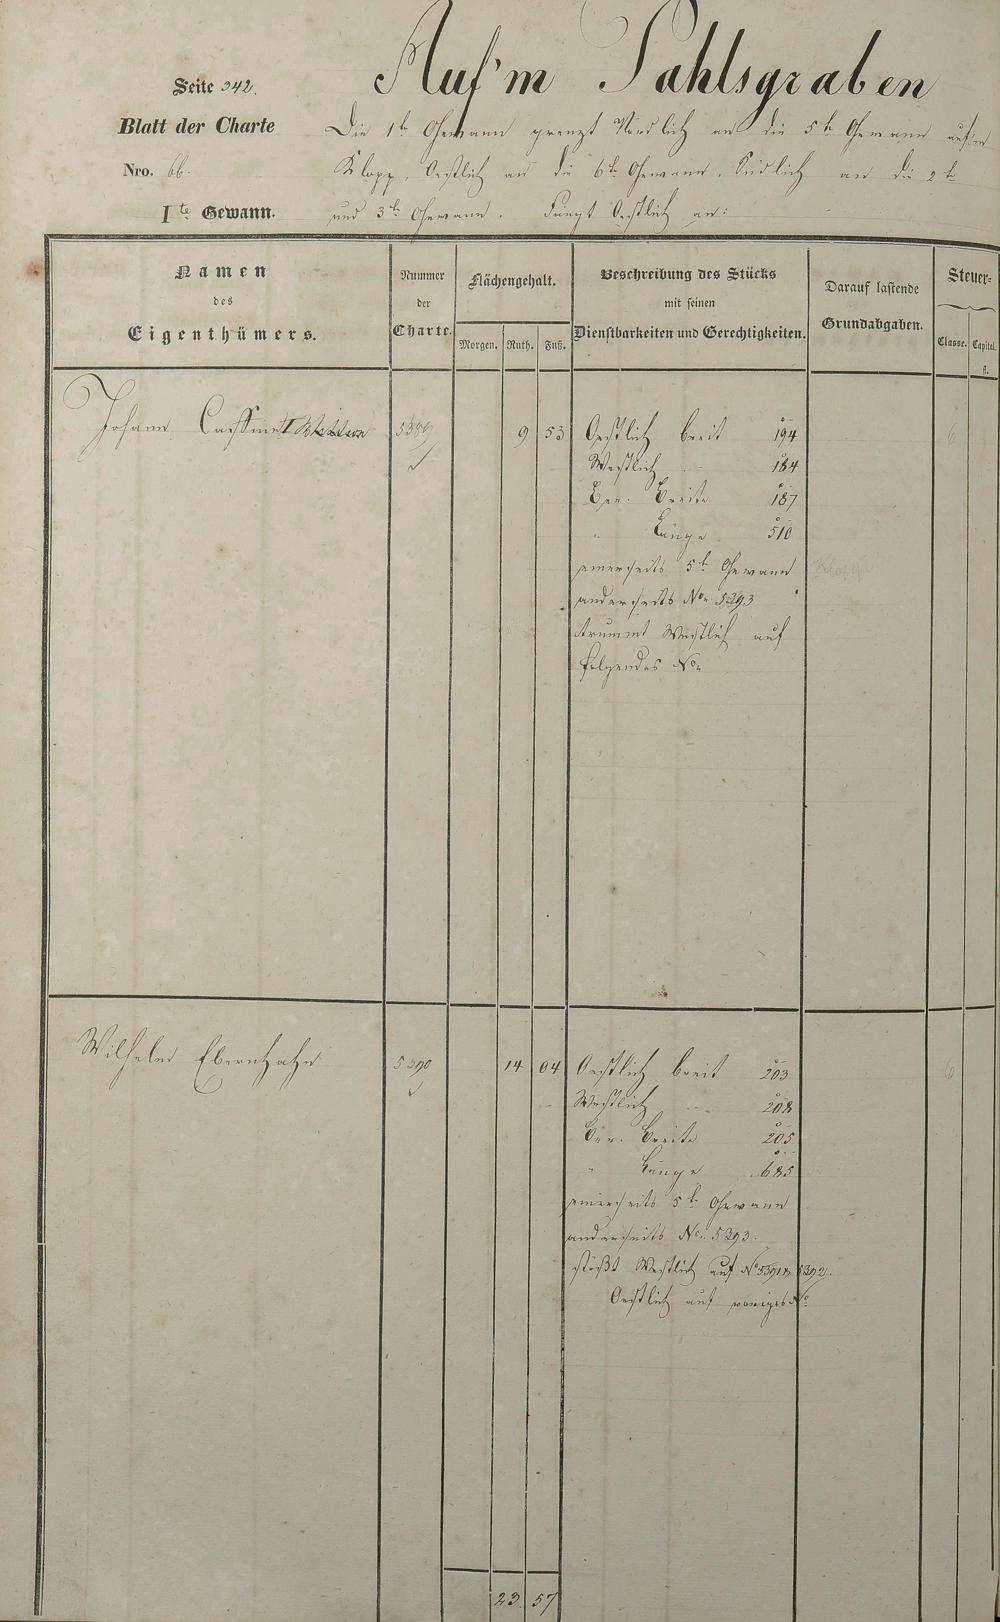 Auf'm Pahlsgraben
Seite 342.
Blatt der Charte
Nro. 66.
Ite Gewann.
Die 1te Gewann grenzt Nördlich an die 5te Gewann auf'm
Klopp, Oestlich an die 6te Gewann, Südlich an die 2te
und 3te Gewann. Fängt Oestlich an:
Namen
des
Eigenthümers.
Nummer
der
Charte.
Flächengehalt.
Morgen. Ruth. Fuß.
Beschreibung des Stücks
mit seinen
Dienstbarkeiten und Gerechtigkeiten.
Darauf lastende
Grundabgaben.
Steuer-
Classe. Capital.
fl.
Johann 5389 9 53 Oestlich breit 194 6
Westlich 184
Ger. Breite 187
" Länge 510
einerseits 5te Gewann
anderseits No. 5393
Westlich auf
folgendes No.
Wilhelm Ebernhahn 5390 14 04 Oestlich breit 203 6
Westlich 208
Ger. Breite 205
" Länge 685
einerseits 5te Gewann
anderseits No. 5393.
stößt Westlich auf No 5391 5392.
Oestlich auf voriges No.
23 57